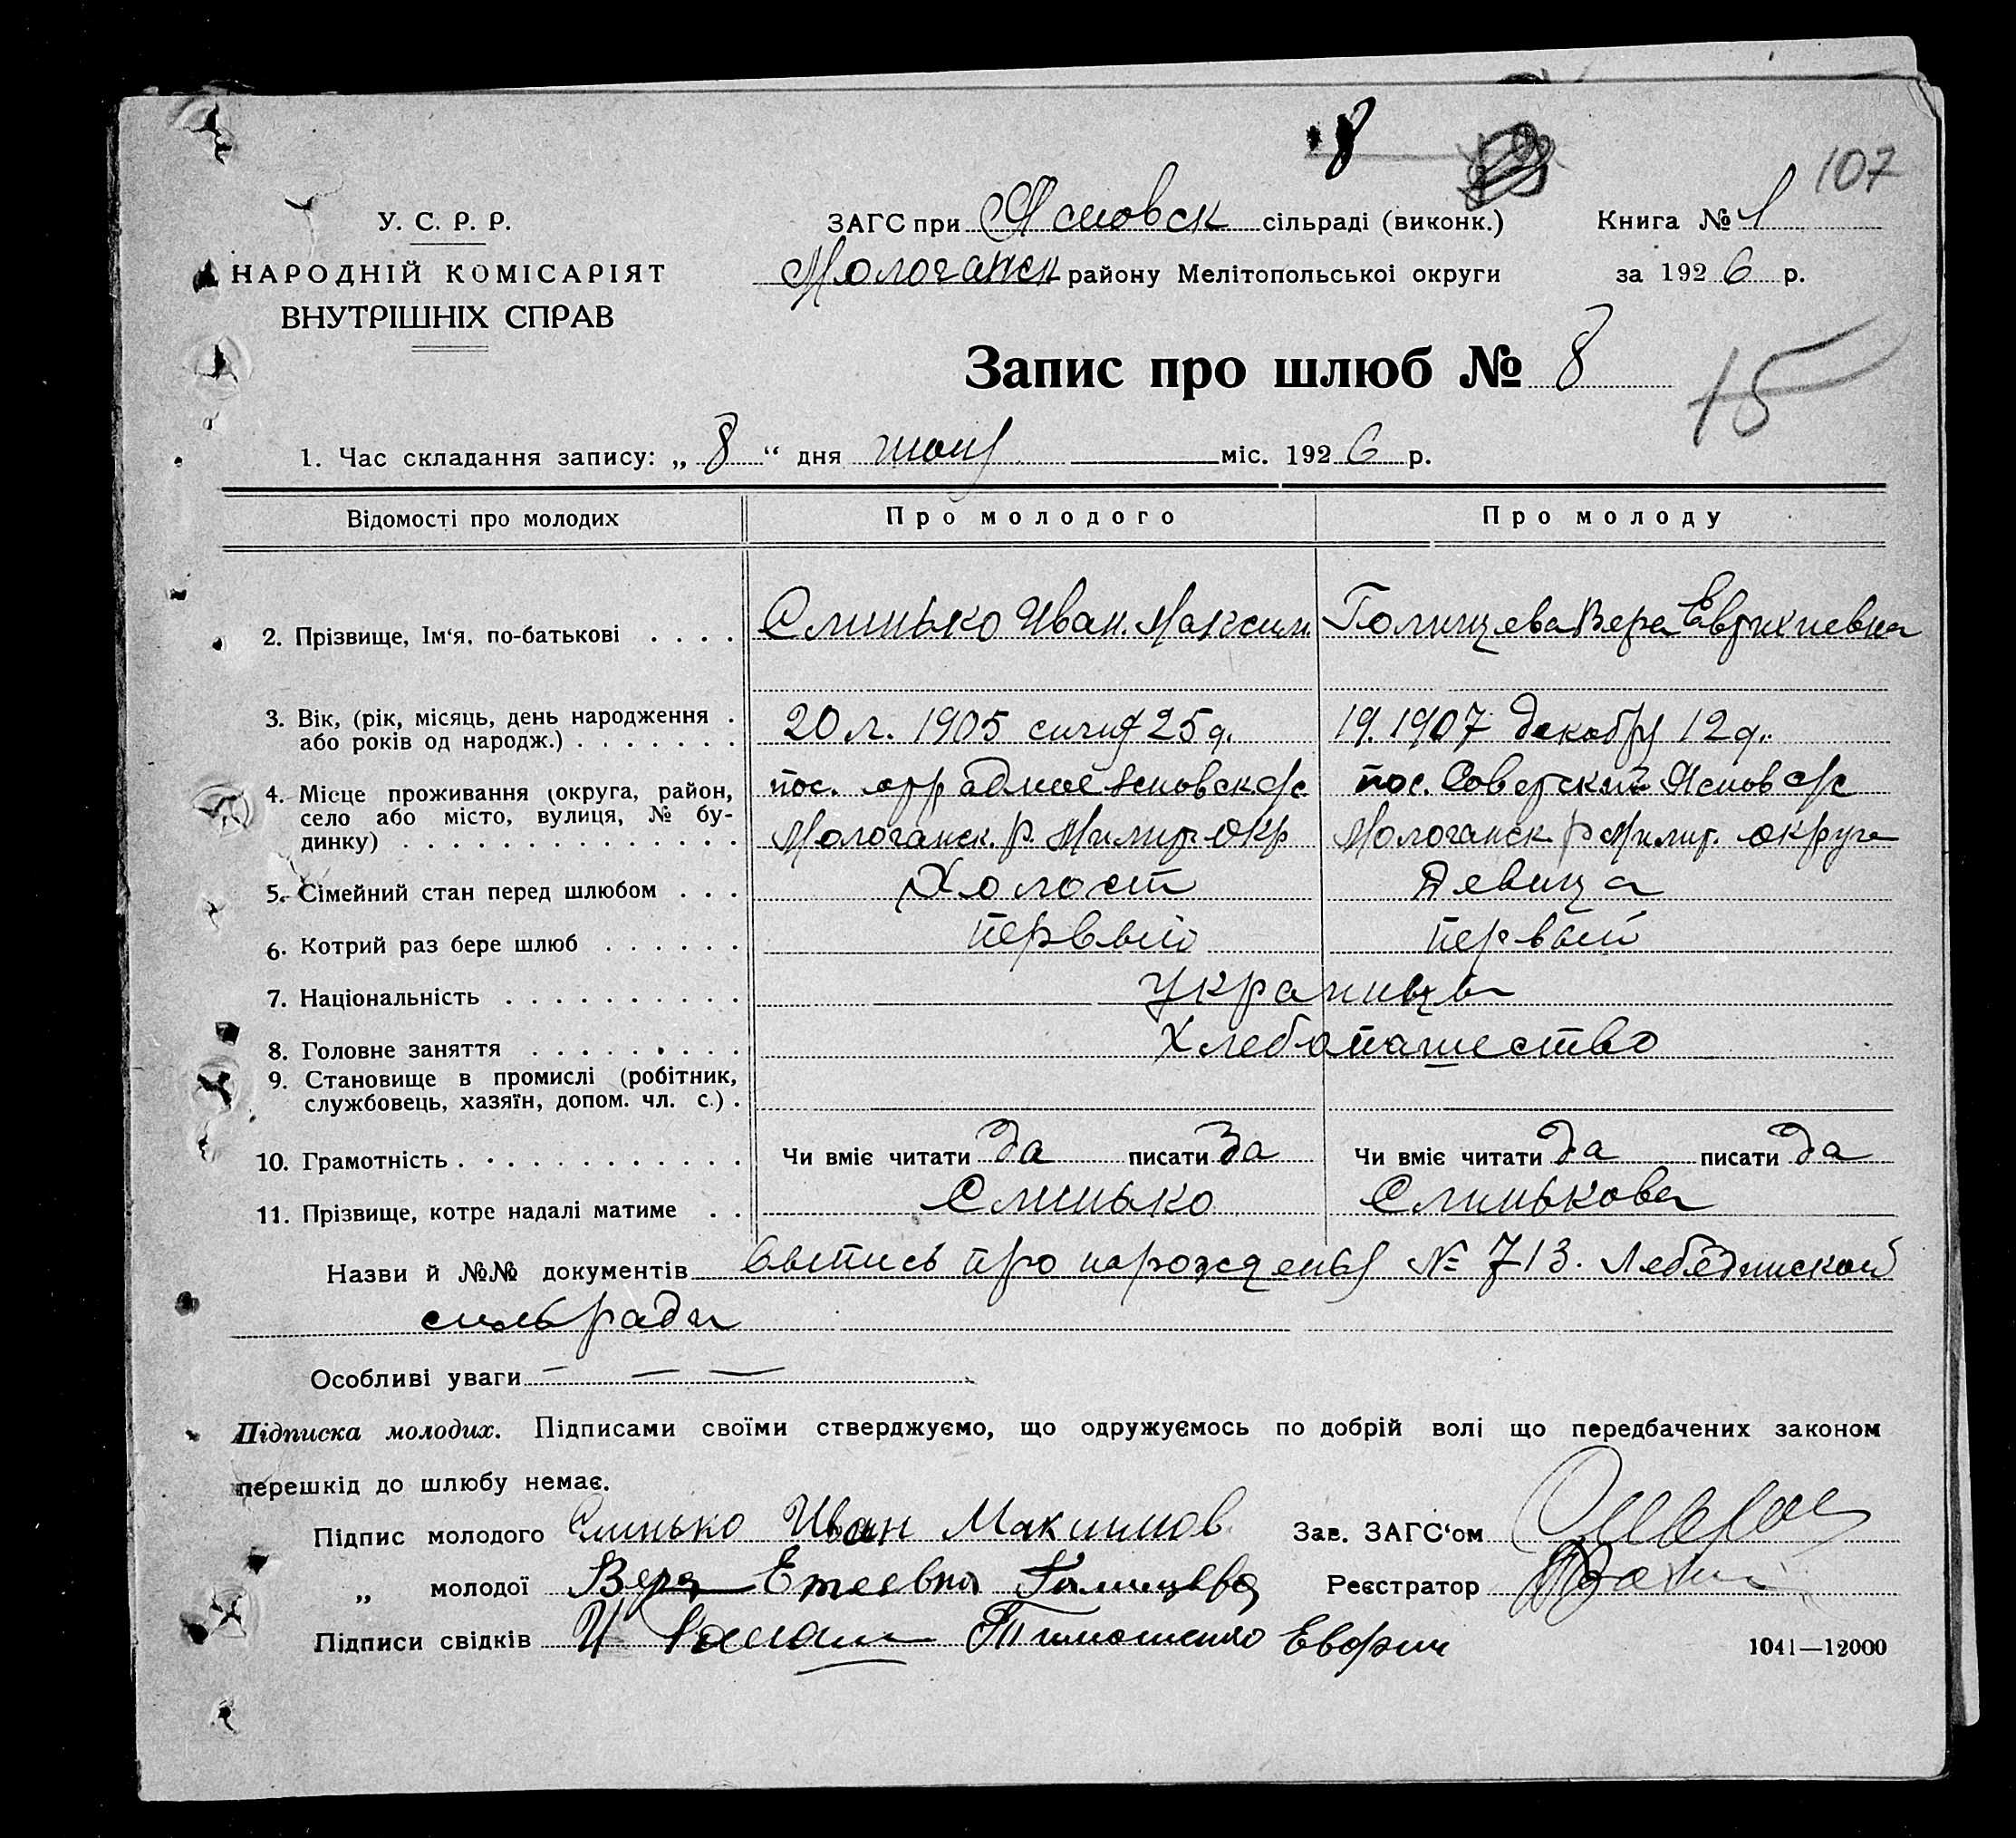 8
107
У. С. Р. Р.
НАРОДНІЙ КОМІСАРІЯТ
ВНУТРІШНІХ СПРАВ
ЗАГС при Ясновск сільраді (виконк.)
Молочанск району Мелітопольської округи
Книга № 1
за 1926 р.
Запис про шлюб № 8
15
1. Час складання запису: „ 8 “ дня міс. 1926 р.
Відомості про молодих Про молодого Про молоду
2. Прізвище, Ім'я, по-батькові Слинько Иван. Максим. Голищева Вера Евтихиевна
3. Вік, (рік, місяць, день народження або років од народж.) 20 л. 1905 25 д. 19. 1907 декабря 12 д.
4. Місце проживання (округа, район, село або місто, вулиця, № будинку)
пос. Отрадное Ясновск с/с
Молочанск. р. Мелит. окр
пос. Советский Яснов с/с
Молочанск р Мелит. округа
5. Сімейний стан перед шлюбом Холост Девица
6. Котрий раз бере шлюб первый первый
7. Національність украинцы
8. Головне заняття Хлебопашество
9. Становище в промислі (робітник, службовець, хазяїн, допом. чл. с.)
10. Грамотність Чи вміє читати да писати да Чи вміє читати да писати да
11. Прізвище, котре надалі матиме Слинько Слинькова
Назви й №№ документів выпись про нарождения № 713. Лебединской
сильрады
Особливі уваги — — —
Підписка молодих. Підписами своїми стверджуємо, що одружуємось по добрій волі що передбачених законом
перешкід до шлюбу немає.
Підпис молодого Слинько Иван Максимов Зав. ЗАГС'ом
„ молодої Вера Голищева Реєстратор
Підписи свідків И Тимошенко
1041—12000